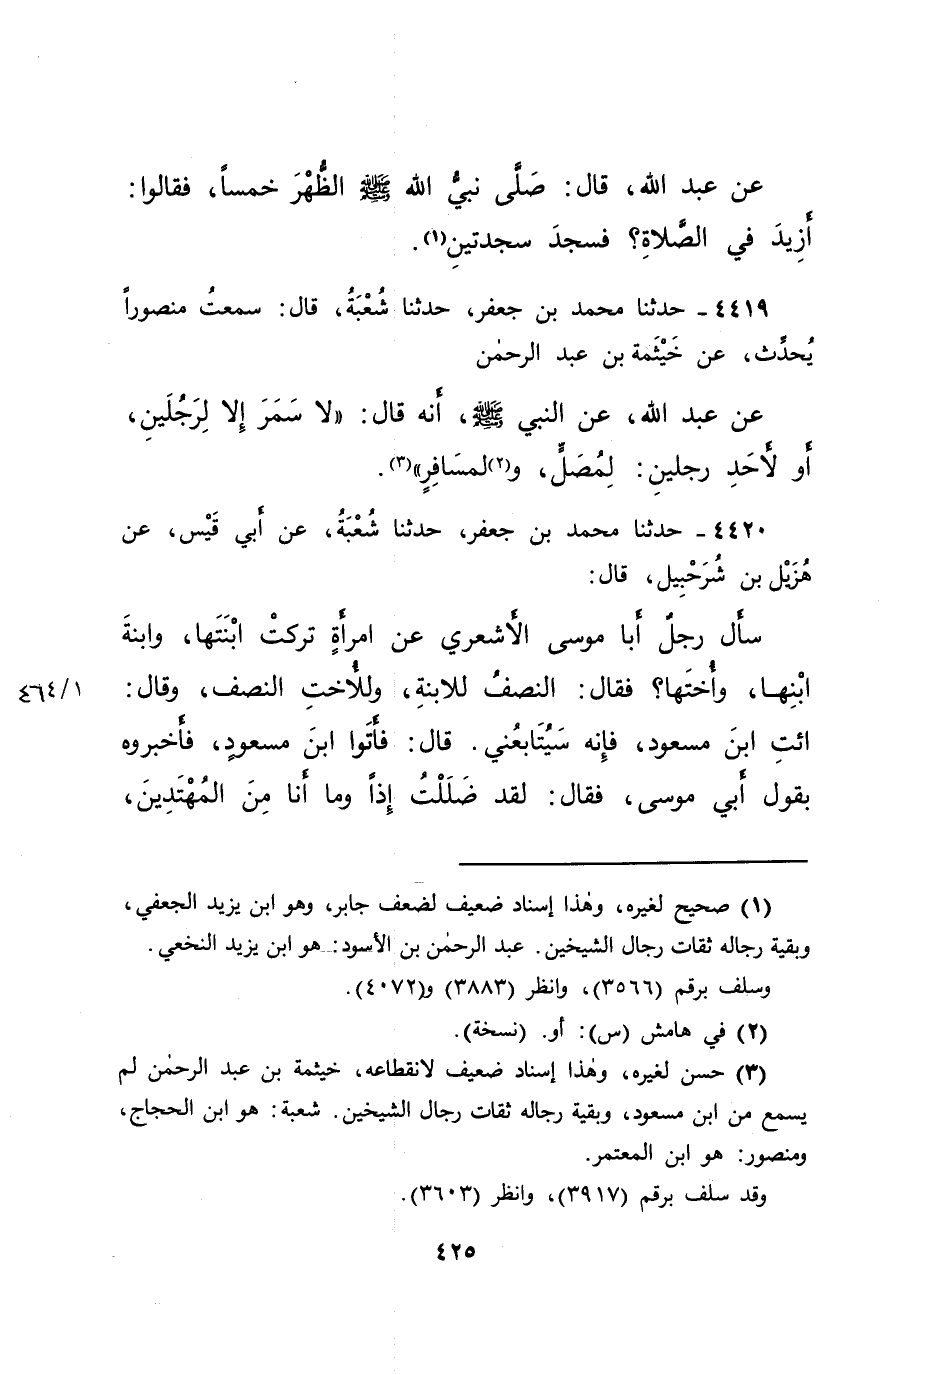 عن عبد الله، قال: صَلَّى نبيُّ الله ﷺ الظُّهْرَ خمساً، فقالوا:
أَزِيدَ في الصَّلاةِ؟ فسجدَ سجدتينِ(١).
٤٤١٩ ـ حدثنا محمد بن جعفر، حدثنا شُعْبَةُ، قال: سمعتُ منصوراً
يُحدِّث، عن خَيْثَمة بن عبد الرحمٰن
عن عبد الله، عن النبي ﷺ، أَنه قال: «لا سَمَرَ إِلا لِرَجُلَينِ،
أَو لأَحَدِ رجلينِ: لِمُصَلٍّ، و(٢)لمسَافِرٍ»(٣).
٤٤٢٠ ـ حدثنا محمد بن جعفر، حدثنا شُعْبَةُ، عن أَبي قَيْس، عن
هُزَيْل بن شُرَحْبِيل، قال:
سأَل رجلٌ أَبا موسى الأَشعري عن امرأَةٍ تركتْ ابْنَتَها، وابنةَ
ابْنِهـا، وأُختَها؟ فقال: النصفُ للابنةِ، وللأُختِ النصف، وقال:
٤٦٤/١
ائتِ ابنَ مسعود، فإِنه سَيُتَابعُني. قال: فأَتَوا ابنَ مسعودٍ، فأَخبروه
بقول أَبي موسى، فقال: لقد ضَلَلْتُ إِذاً وما أَنا مِنَ المُهْتَدِينَ،
(١) صحيح لغيره، وهٰذا إسناد ضعيف لضعف جابر، وهو ابن يزيد الجعفي،
وبقية رجاله ثقات رجال الشيخين. عبد الرحمٰن بن الأسود: هو ابن يزيد النخعي.
وسلف برقم (٣٥٦٦)، وانظر (٣٨٨٣) و(٤٠٧٢).
(٢) في هامش (س): أو. (نسخة).
(٣) حسن لغيره، وهٰذا إسناد ضعيف لانقطاعه، خيثمة بن عبد الرحمٰن لم
يسمع من ابن مسعود، وبقية رجاله ثقات رجال الشيخين. شعبة: هو ابن الحجاج،
ومنصور: هو ابن المعتمر.
وقد سلف برقم (٣٩١٧)، وانظر (٣٦٠٣).
٤٢٥